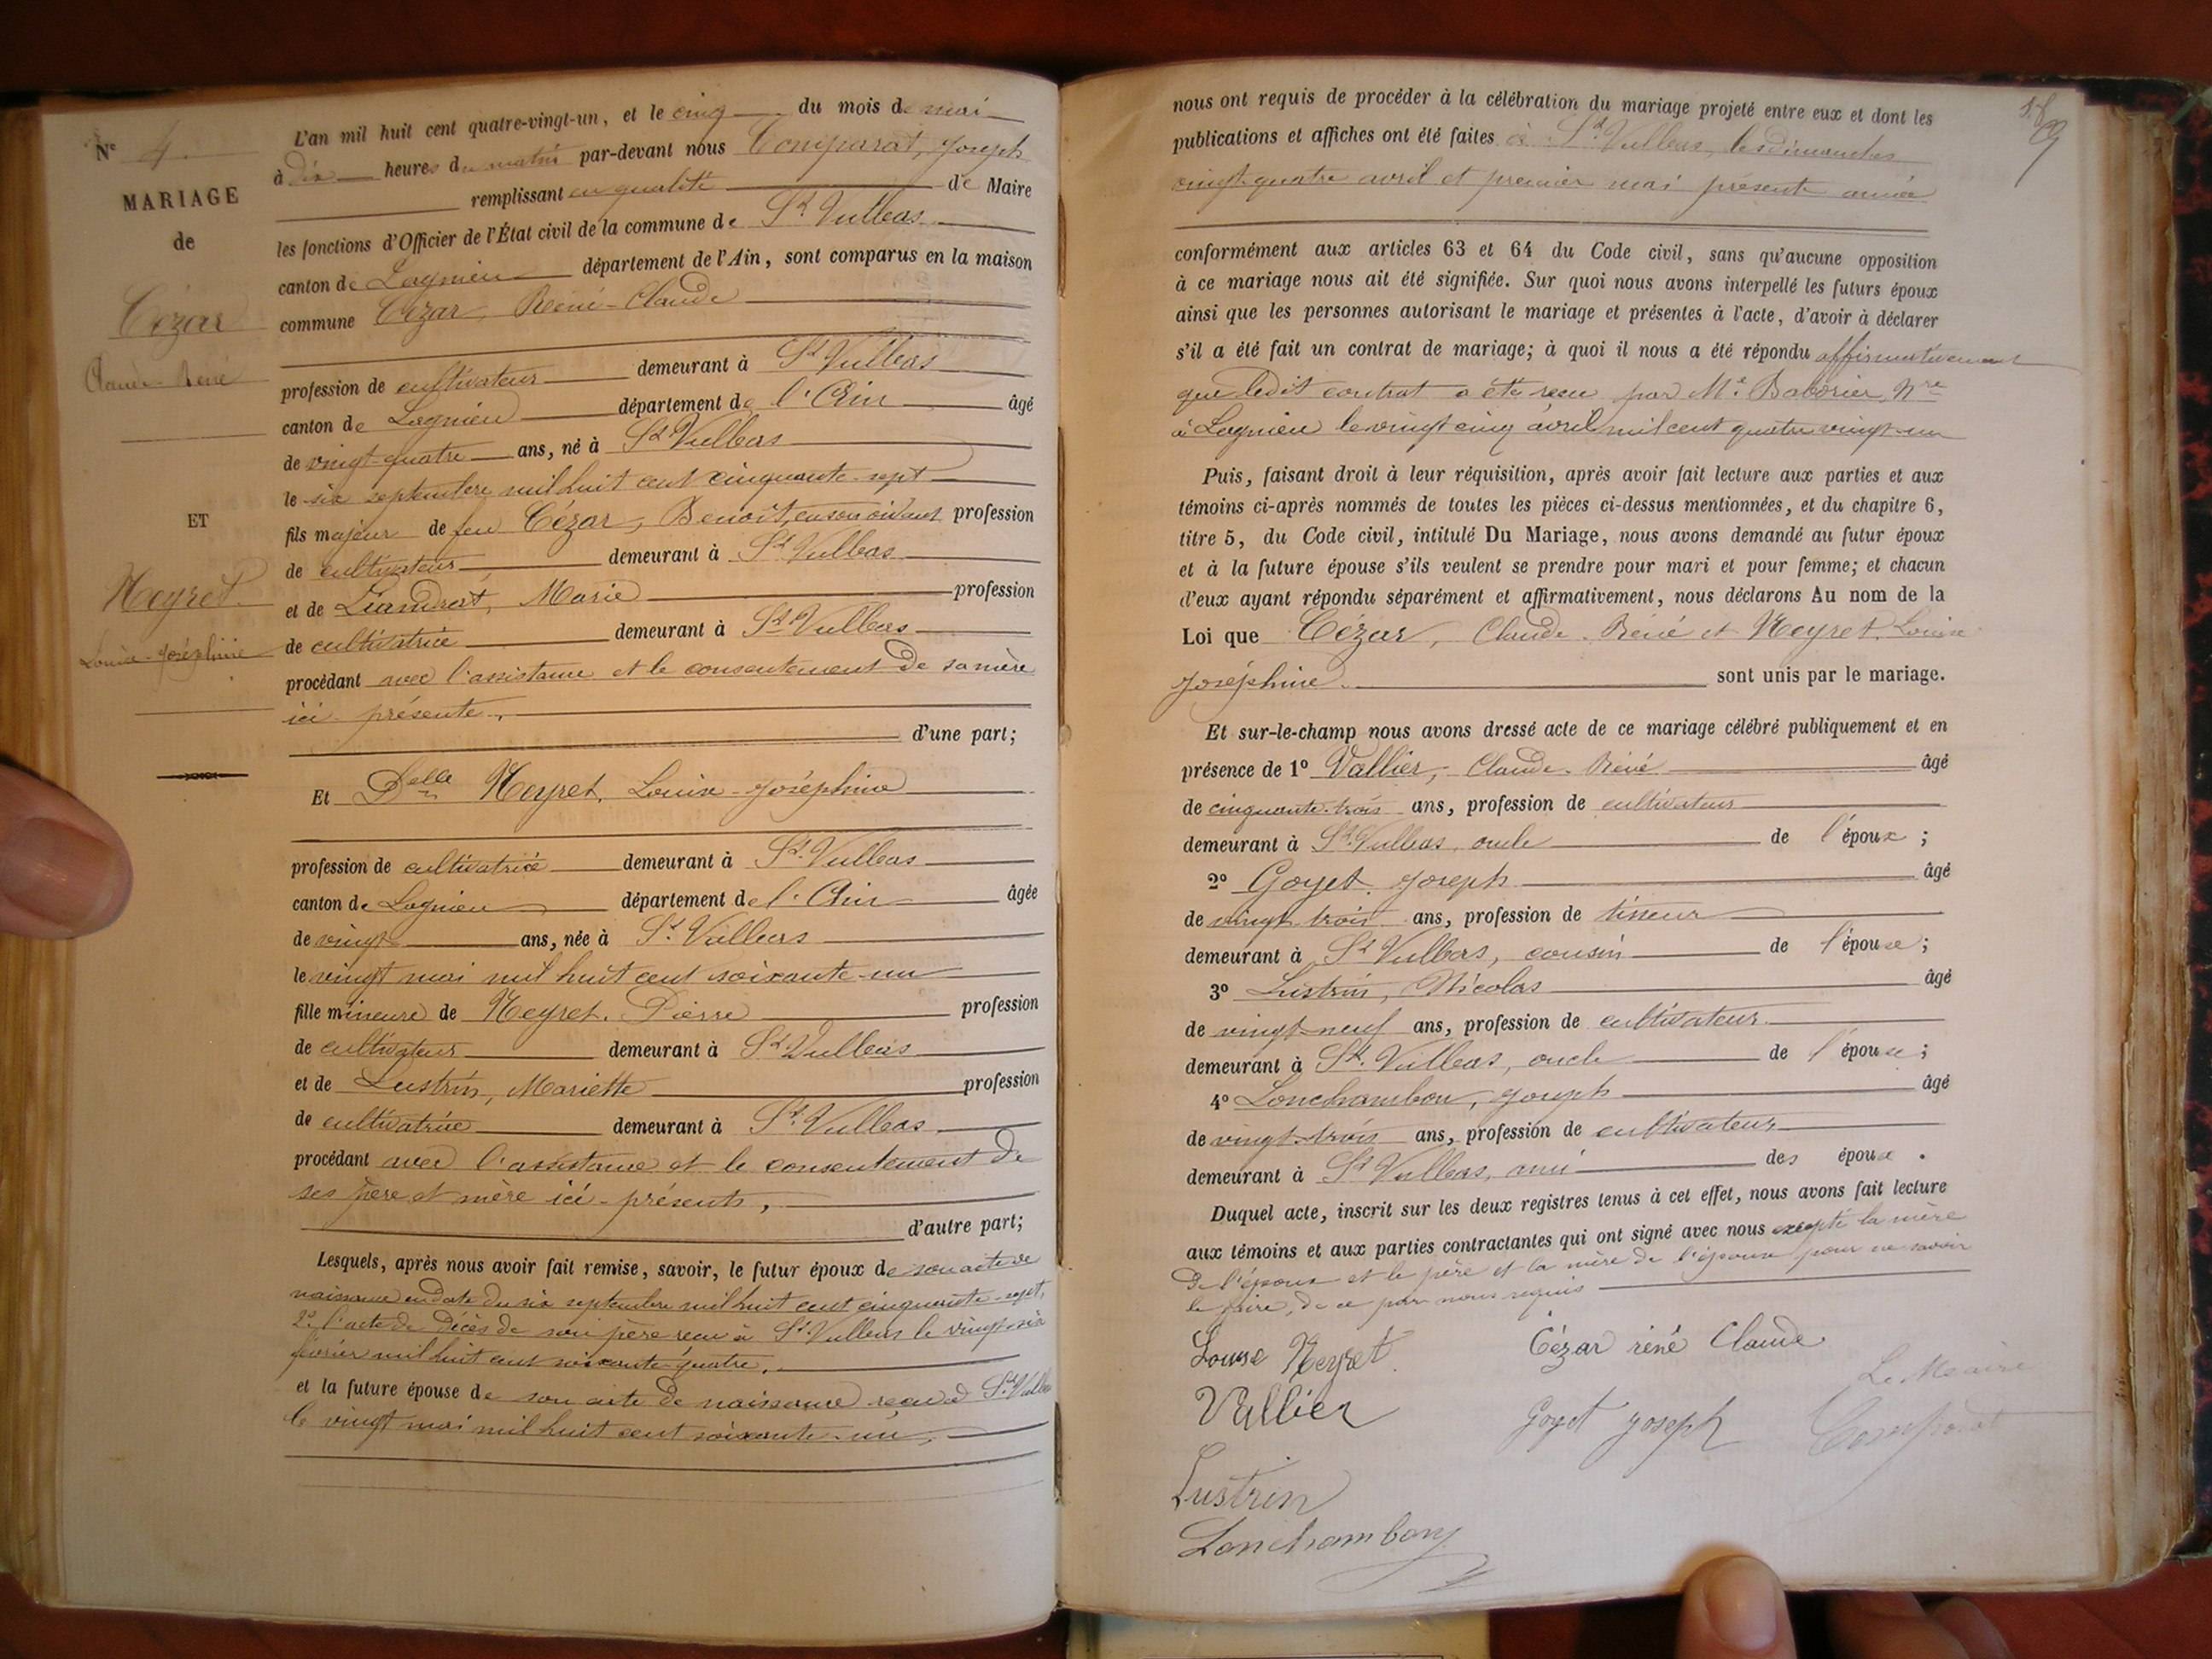 Nº 4.
MARIAGE
de
Cézar
Claude-René
ET
Neyret
Louise-Joséphine
L'an mil huit cent quatre-vingt-un, et le cinq du mois de mai
à dix heures du matin par-devant nous Comparat, Joseph
remplissant en qualité de Maire
les fonctions d'Officier de l'État civil de la commune de St Vulbas
canton de Lagnieu département de l'Ain, sont comparus en la maison
commune Cézar, Réné-Claude
profession de cultivateur demeurant à St Vulbas
canton de Lagnieu département de l'Ain âgé
de vingt-quatre ans, né à St Vulbas
le six septembre mil huit cent cinquante-sept
fils majeur de feu Cézar, Benoit, en son vivant profession
de cultivateur demeurant à St Vulbas
et de Liandrat, Marie profession
de cultivatrice demeurant à St Vulbas
procédant avec l'assistance et le consentement de sa mère
ici présente.
d'une part;
Et Delle Neyret, Louise-Joséphine
profession de cultivatrice demeurant à St Vulbas
canton de Lagnieu département de l'Ain âgée
de vingt ans, née à St Vulbas
le vingt mai mil huit cent soixante-un
fille mineure de Neyret, Pierre profession
de cultivateur demeurant à St Vulbas
et de Lustrin, Mariette profession
de cultivatrice demeurant à St Vulbas
procédant avec l'assistance et le consentement de
ses père et mère ici-présents,
d'autre part;
Lesquels, après nous avoir fait remise, savoir, le futur époux de son acte de
naissance en date du six septembre mil huit cent cinquante-sept,
2º l'acte de décès de son père reçu à St Vulbas le vingt-six
février mil huit cent soixante-quatre.
et la future épouse de son acte de naissance reçu à St Vulbas
le vingt mai mil huit cent soixante-un,
nous ont requis de procéder à la célébration du mariage projeté entre eux et dont les
publications et affiches ont été faites à St Vulbas, les dimanches
vingt-quatre avril et premier mai présente année
conformément aux articles 63 et 64 du Code civil, sans qu'aucune opposition
à ce mariage nous ait été signifiée. Sur quoi nous avons interpellé les futurs époux
ainsi que les personnes autorisant le mariage et présentes à l'acte, d'avoir à déclarer
s'il a été fait un contrat de mariage; à quoi il nous a été répondu affirmativement
que ledit contrat a été reçu par Me Baborier, Nre
à Lagnieu le vingt cinq avril mil cent quatre vingt-un
Puis, faisant droit à leur réquisition, après avoir fait lecture aux parties et aux
témoins ci-après nommés de toutes les pièces ci-dessus mentionnées, et du chapitre 6,
titre 5, du Code civil, intitulé Du Mariage, nous avons demandé au futur époux
et à la future épouse s'ils veulent se prendre pour mari et pour femme; et chacun
d'eux ayant répondu séparément et affirmativement, nous déclarons Au nom de la
Loi que Cézar, Claude-Réné et Neyret, Louise
Joséphine. sont unis par le mariage.
Et sur-le-champ nous avons dressé acte de ce mariage célébré publiquement et en
présence de 1º Vallier, Claude-Réné âgé
de cinquante-trois ans, profession de cultivateur
demeurant à St Vulbas, oncle de l'époux ;
2º Goyet, Joseph âgé
de vingt-trois ans, profession de tisseur
demeurant à St Vulbas, cousin de l'épouse;
3º Lustrin, Nicolas âgé
de vingt-neuf ans, profession de cultivateur
demeurant à St Vulbas, oncle de l'épouse;
4º Lonchambon, Joseph âgé
de vingt-trois ans, profession de cultivateur
demeurant à St Vulbas, ami des époux .
Duquel acte, inscrit sur les deux registres tenus à cet effet, nous avons fait lecture
aux témoins et aux parties contractantes qui ont signé avec nous excepté la mère
de l'époux et le père et la mère de l'épouse pour ne savoir
le faire, de ce par nous requis
Louise Neyret Cézar réné Claude
Le Maire
Vallier Goyet Joseph Comparat
Lustrin
Lonchambon